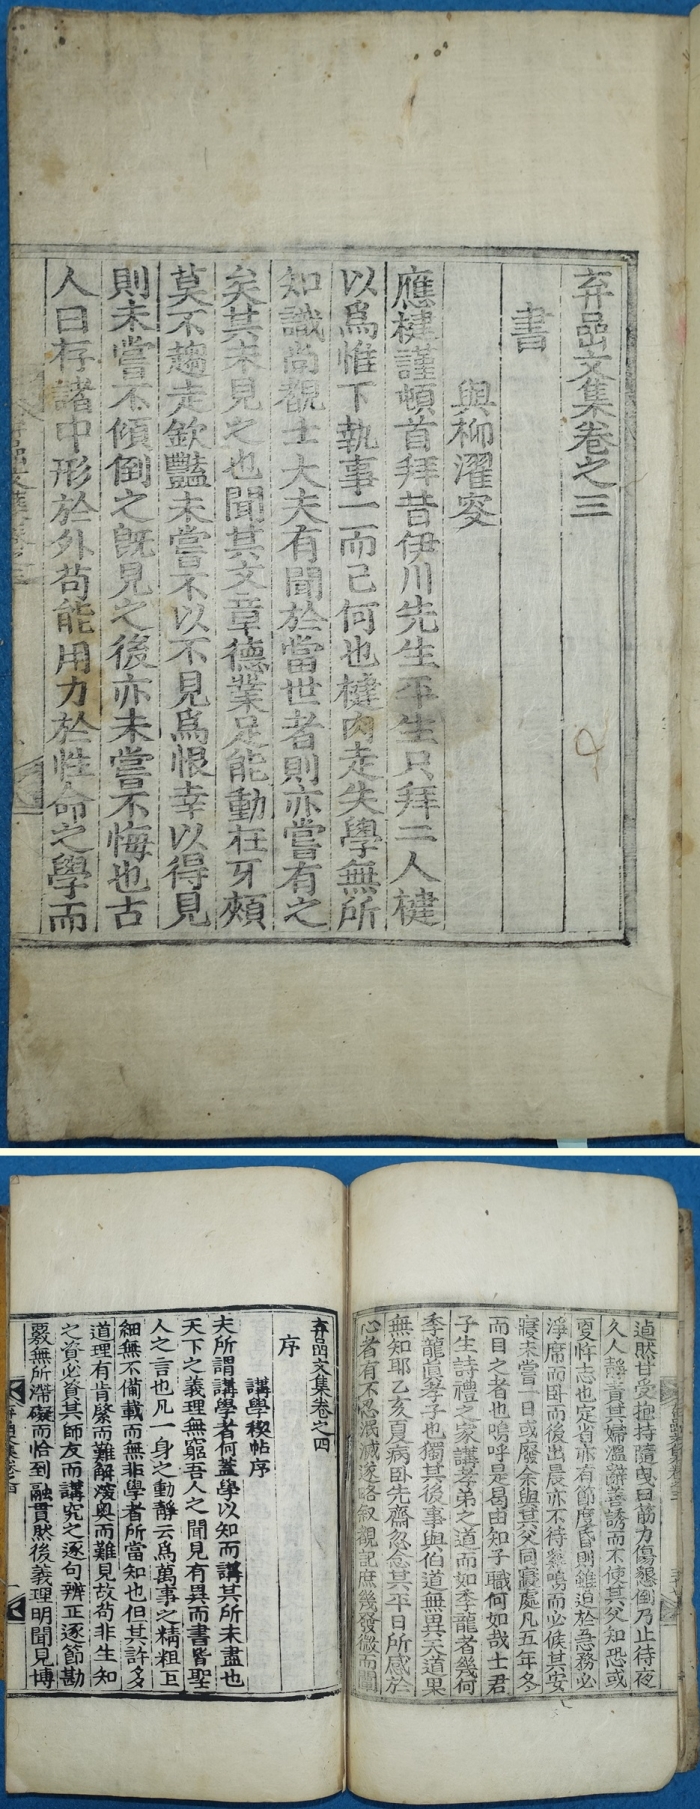 弃嵒文集卷之三
書
與柳濯安
應楗謹頓首拜昔伊川先生平生只拜二人楗
以爲惟下執事一而已何也楗肉走失學無所
知識尚觀士大夫有聞於當世者則亦嘗有之
矣其未見之也聞其文章德業足能動在牙頰
莫不趨走欽豔未嘗不以不見爲恨幸以得見
則未嘗不傾倒之旣見之後亦未嘗不悔也古
人曰存諸中形於外苟能用力於性命之學而
逌然甘受抱持隨曳曰筋力傷憊倒乃止待夜
久人靜責其婦溫辭善誘而不使其父知恐或
憂忤志也定省亦有節度昏則雖迫於急務必
淨席而卧而後出晨亦不待鷄鳴而必候其安
寢未嘗一日或廢余與其父同寢處凡五年冬
而目之者也嗚呼是曷由知子職何如哉士君
子生詩禮之家講孝弟之道而如季龍者幾何
季龍眞孝子也獨其後事與伯道無異天道果
無知耶乙亥夏病卧先齋忽念其平日所感於
心者有不忍泯滅遂略叙觀記庶幾發微而闡
弃嵒文集卷之四
序
講學稧帖序
夫所謂講學者何蓋學以知而講其所未盡也
天下之義理無窮吾人之聞見有異而書皆聖
人之言也凡一身之動靜云爲萬事之精粗巨
細無不備載而無非學者所當知也但其許多
道理有肯綮而難解溪奧而難見故苟非生知
之資必資其師友而講究之逐句辨正逐節勘
覈無所滯礙而恰到融貫然後義理明聞見博